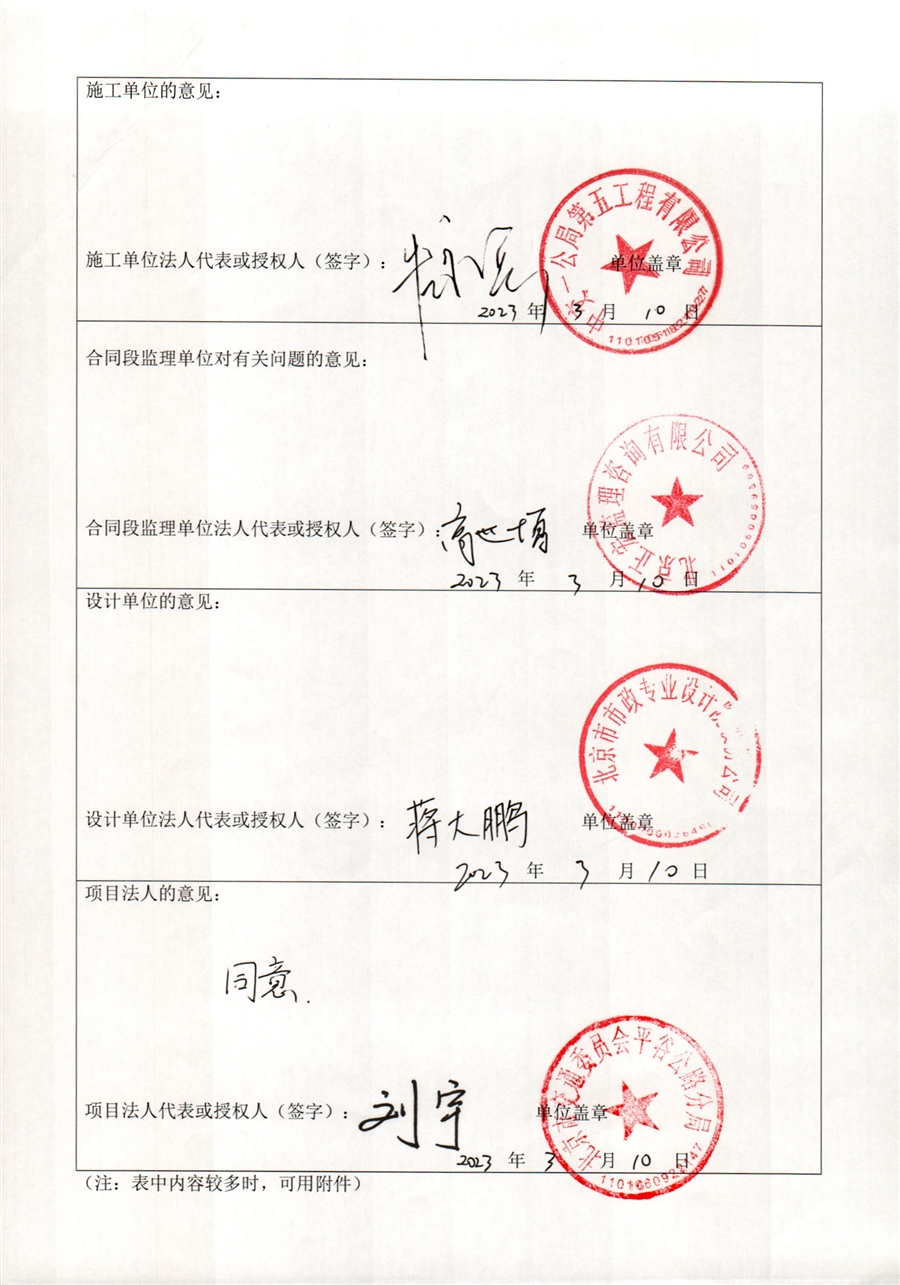 施工单位的意见：
中交一公局第五工程有限公司
施工单位法人代表或授权人（签字）：
单位盖章
2023 年 3 月 10 日
合同段监理单位对有关问题的意见：
北京正宏监理咨询有限公司
合同段监理单位法人代表或授权人（签字）：高世
单位盖章
2023 年 3 月 10 日
设计单位的意见：
北京市市政专业设计院股份公司
设计单位法人代表或授权人（签字）：蒋大鹏 单位盖章
2023 年 3 月 10 日
项目法人的意见：
同意.
北京市交通委员会平谷公路分局
项目法人代表或授权人（签字）：刘宇 单位盖章
2023 年 3 月 10 日
（注：表中内容较多时，可用附件）